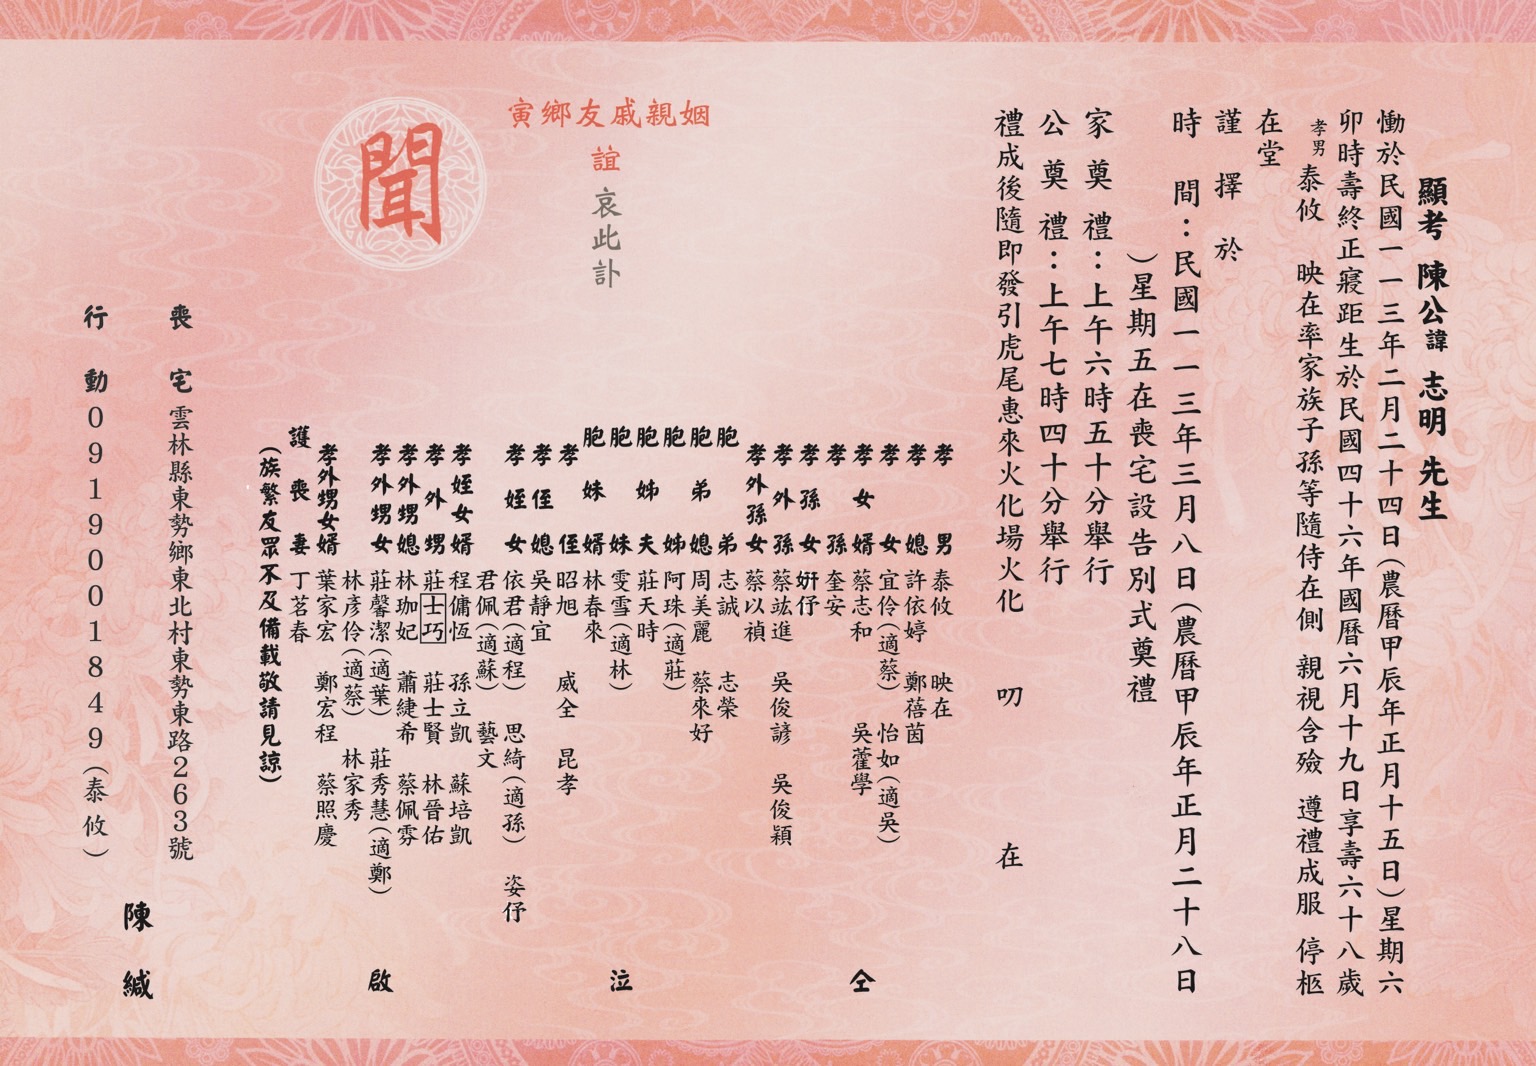 顯考 陳公諱 志明 先生
慟於民國一一三年二月二十四日(農曆甲辰年正月十五日)星期六
卯時壽終正寢距生於民國四十六年國曆六月十九日享壽六十八歲
孝男 泰攸 映在率家族子孫等隨侍在側 親視含殮 遵禮成服 停柩
在堂
謹擇於
時間：民國一一三年三月八日(農曆甲辰年正月二十八日
)星期五在喪宅設告別式奠禮
家奠禮：上午六時五十分舉行
公奠禮：上午七時四十分舉行
禮成後隨即發引虎尾惠來火化場火化 叨 在
姻親戚友鄉寅
誼
哀此訃
聞
孝男 泰攸 映在
孝媳 許依婷 鄭蓓茵
孝女 宜伶(適蔡) 怡如(適吳)
孝女婿 蔡志和 吳藿學
孝孫 奎安
孝孫女 姸伃
孝外孫 蔡竑進 吳俊諺 吳俊穎
孝外孫女 蔡以禎
胞弟 志誠 志榮
胞弟媳 周美麗 蔡來好
胞姊 阿珠(適莊)
胞姊夫 莊天時
胞妹 雯雪(適林)
胞妹婿 林春來
孝侄 昭旭 威全 昆孝
孝侄媳 吳靜宜
孝姪女 依君(適程) 思綺(適孫) 姿伃
君佩(適蘇) 藝文
孝姪女婿 程傭恆 孫立凱 蘇培凱
孝外甥 莊士巧 莊士賢 林晉佑
孝外甥媳 林珈妃 蕭緁希 蔡佩雰
孝外甥女 莊馨潔(適葉) 莊秀慧(適鄭)
林彥伶(適蔡) 林家秀
孝外甥女婿 葉家宏 鄭宏程 蔡照慶
護喪妻 丁茗春
仝
泣
啟
(族繁友眾不及備載敬請見諒)
喪宅 雲林縣東勢鄉東北村東勢東路263號
陳緘
行動0919001849(泰攸)